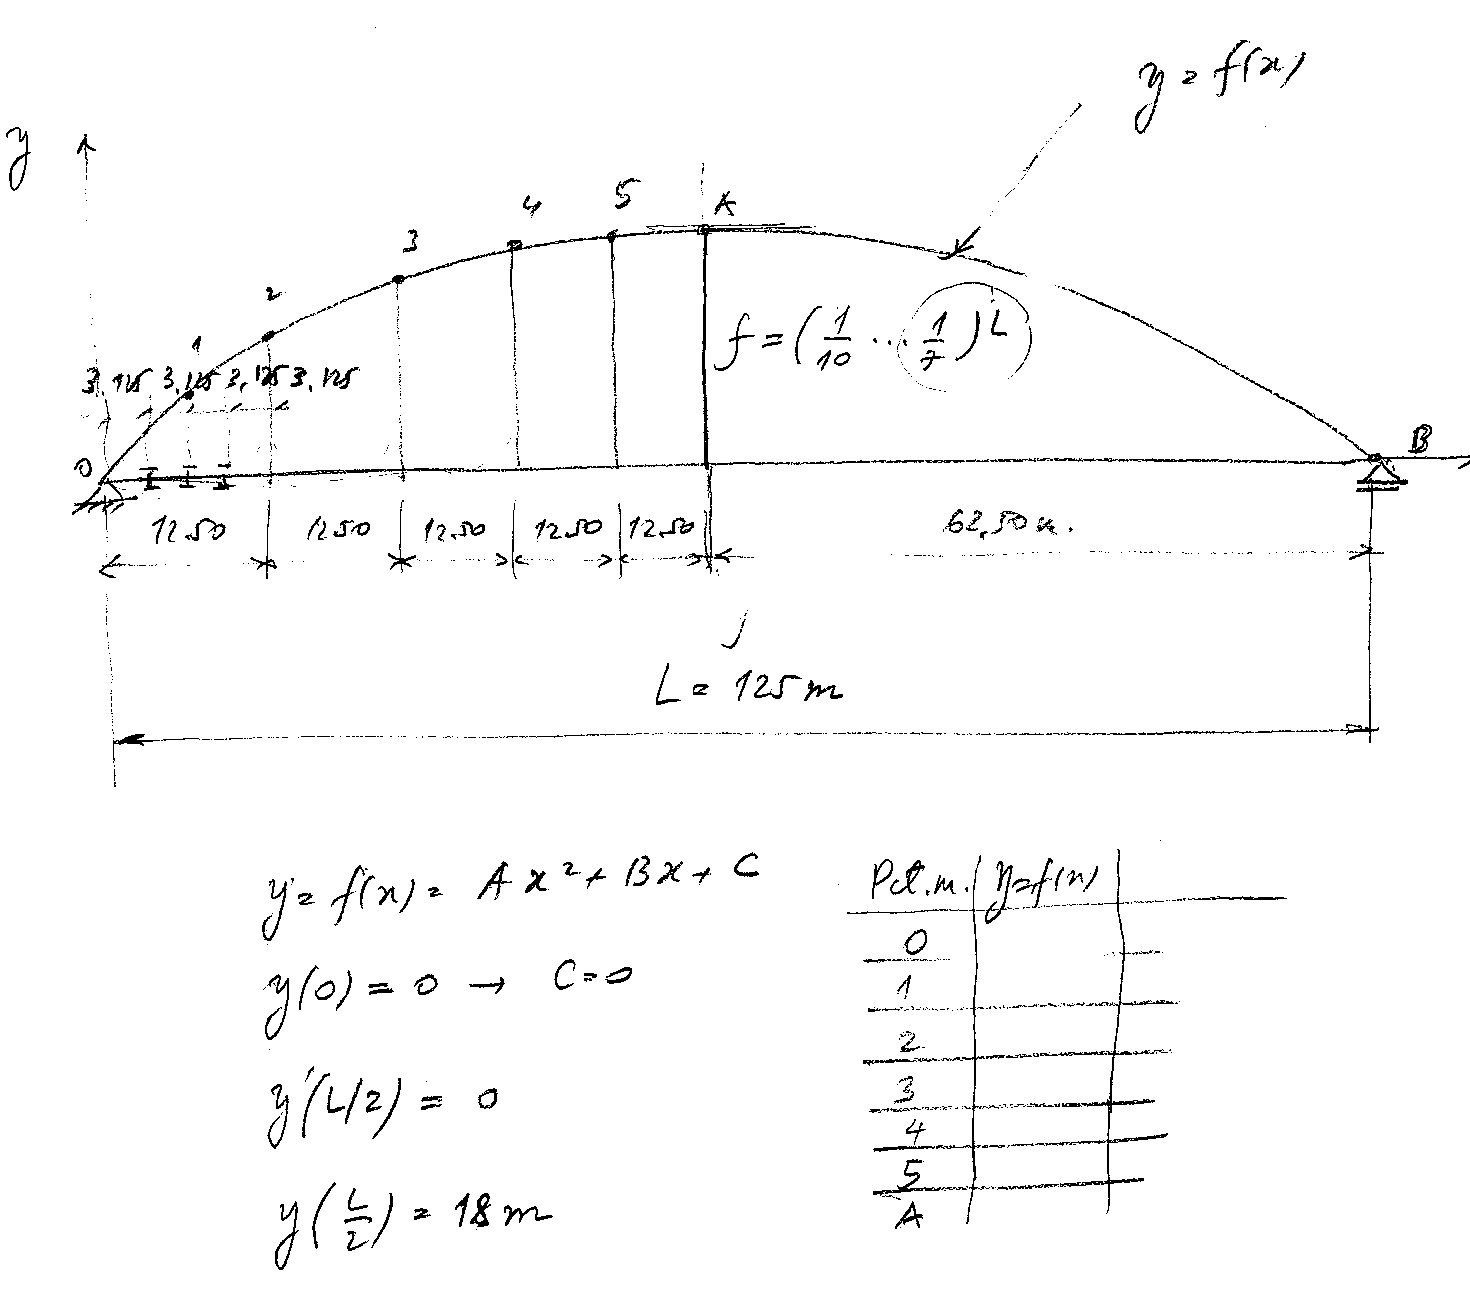 y = f(x)
y
1
2
3
4
5
A
f = (1/10 ... 1/7) L
3,125 3,125 3,125 3,125
0
B
12.50 12.50 12.50 12.50 12.50 62,50 m.
L = 125 m
y = f(x) = A x² + Bx + C
y(0) = 0 → C = 0
y'(L/2) = 0
y(L/2) = 18 m
Pct.m. y=f(x)
0
1
2
3
4
5
A